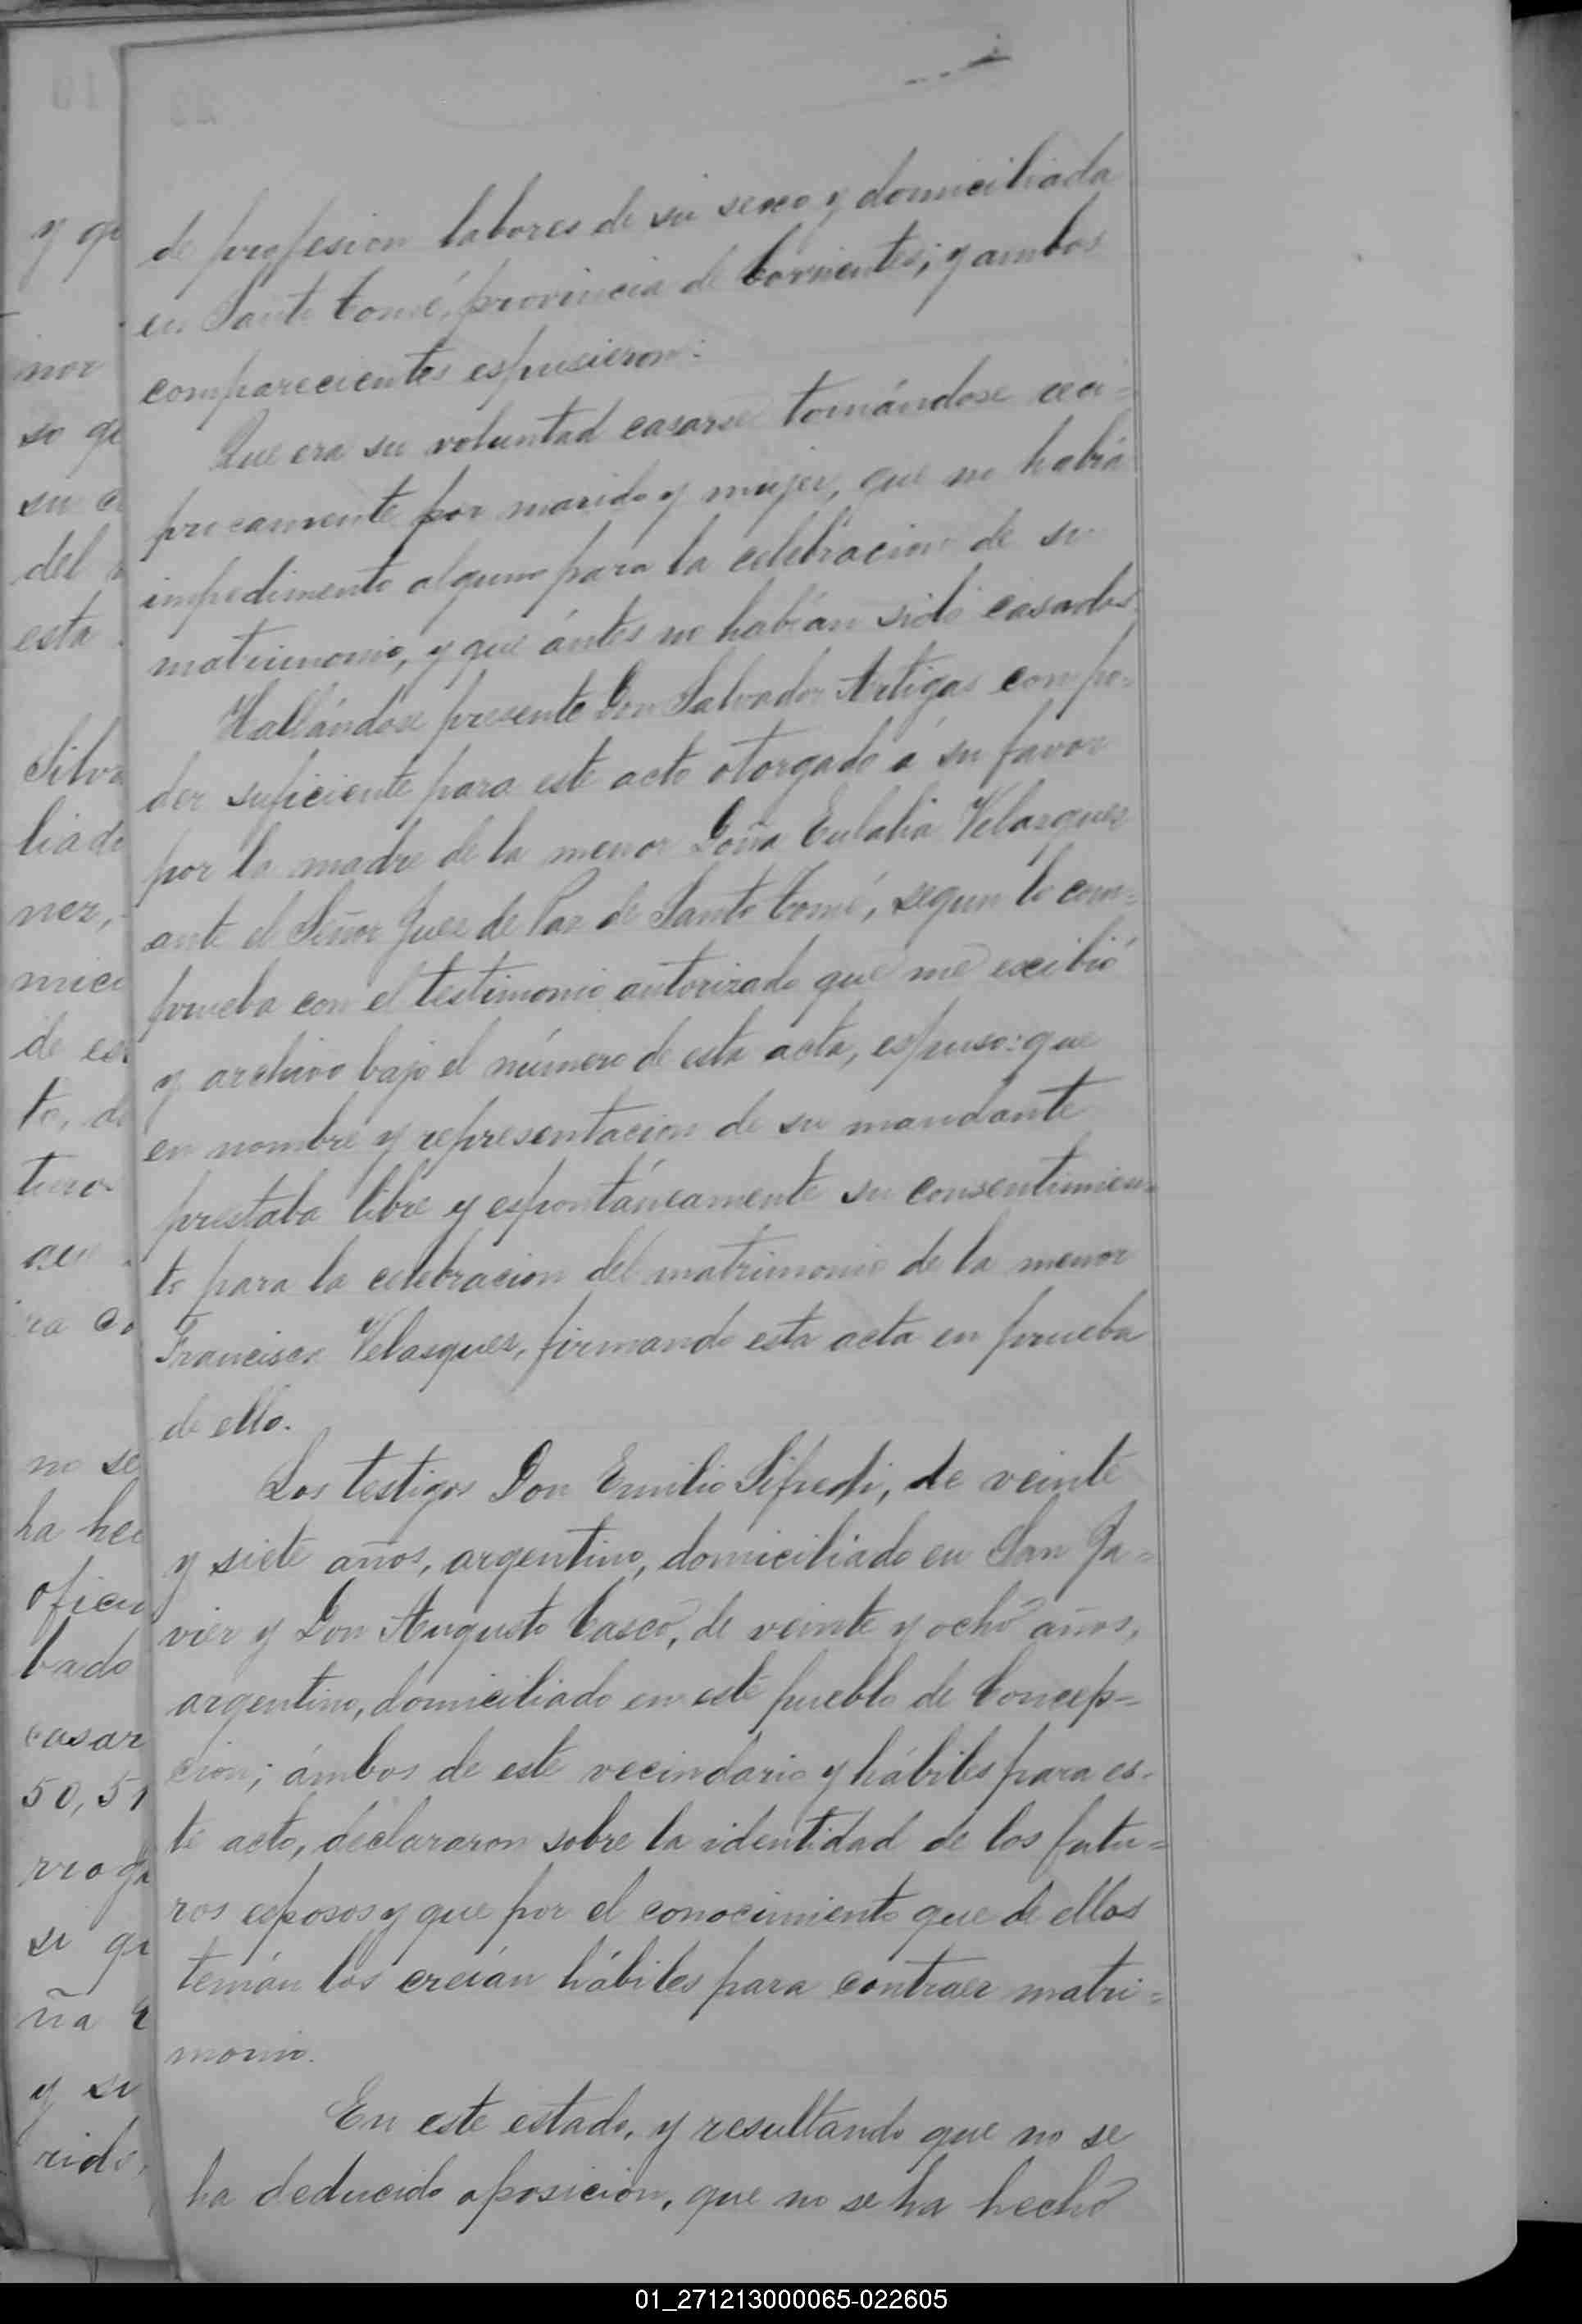 de profesion labores de su sexo y domiciliada
en Santo Tomé, provincia de Corrientes; y ambos
comparecientes espusieron:
Que era su voluntad casarse tomándose reci=
procamente por marido y mujer, que no había
impedimento alguno para la celebracion de su
matrimonio, y que ántes no habían sido casados.
Hallándose presente Don Salvador Artigas con po=
der suficiente para este acto otorgado á su favor
por la madre de la menor Doña Eulalia Velasquez
ante el Señor Juez de Paz de Santo Tomé, segun lo com=
prueba con el testimonio autorizado que me excibió
y archivo bajo el número de esta acta, espuso: que
en nombre y representacion de su mandante
prestaba libre y espontáneamente su consentimien=
to para la celebracion del matrimonio de la menor
Francisca Velasquez, firmando esta acta en prueba
de ello.
Los testigos Don Emilio Sifredi, de veinte
y siete años, argentino, domiciliado en San Ja=
vier y Don Augusto Casco, de veinte y ocho años,
argentino, domiciliado en este pueblo de Concep=
cion; ámbos de este vecindario y hábiles para es=
te acto, declararon sobre la identidad de los futu=
ros esposos y que por el conocimiento que de ellos
tenían los creían hábiles para contraer matri=
monio.
En este estado, y resultando que no se
ha deducido oposicion, que no se ha hecho
01_271213000065-022605